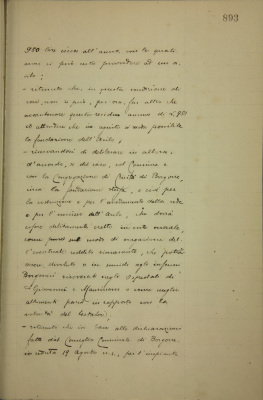 893
950 lire circa all'anno, con la quale
non si può certo provvedere ad un a-
silo;
- ritenuto che, in queste condizioni di
cose, non si può, per ora, far altro che
accantonare questa rendita annua di L. 950
ed attendere che sia possibile
la fondazione dell'Asilo,
- riservandosi di deliberare in allora,
d'accordo, se del caso, col Comune e
con la Congregazione di Carità di Borgoire,
circa la fondazione stessa, e così per
la redazione e per l'adattamento della sede
e per l'esercizio dell'Asilo, che dovrà
essere debitamente eretto in ente morale,
come pure sul modo di erogazione del-
l'eventuale reddito rimanente, che potrà
essere devoluto o in sussidi agli infermi
ricoverati negli Ospedali di
S. Giovanni e Mauriziano o come meglio
altrimenti paia in rapporto con la
volontà del testatore;
- ritenuto che in base alle dichiarazioni
fatte dal Consiglio Comunale di
in seduta 19 Agosto u.s., per l'impianto